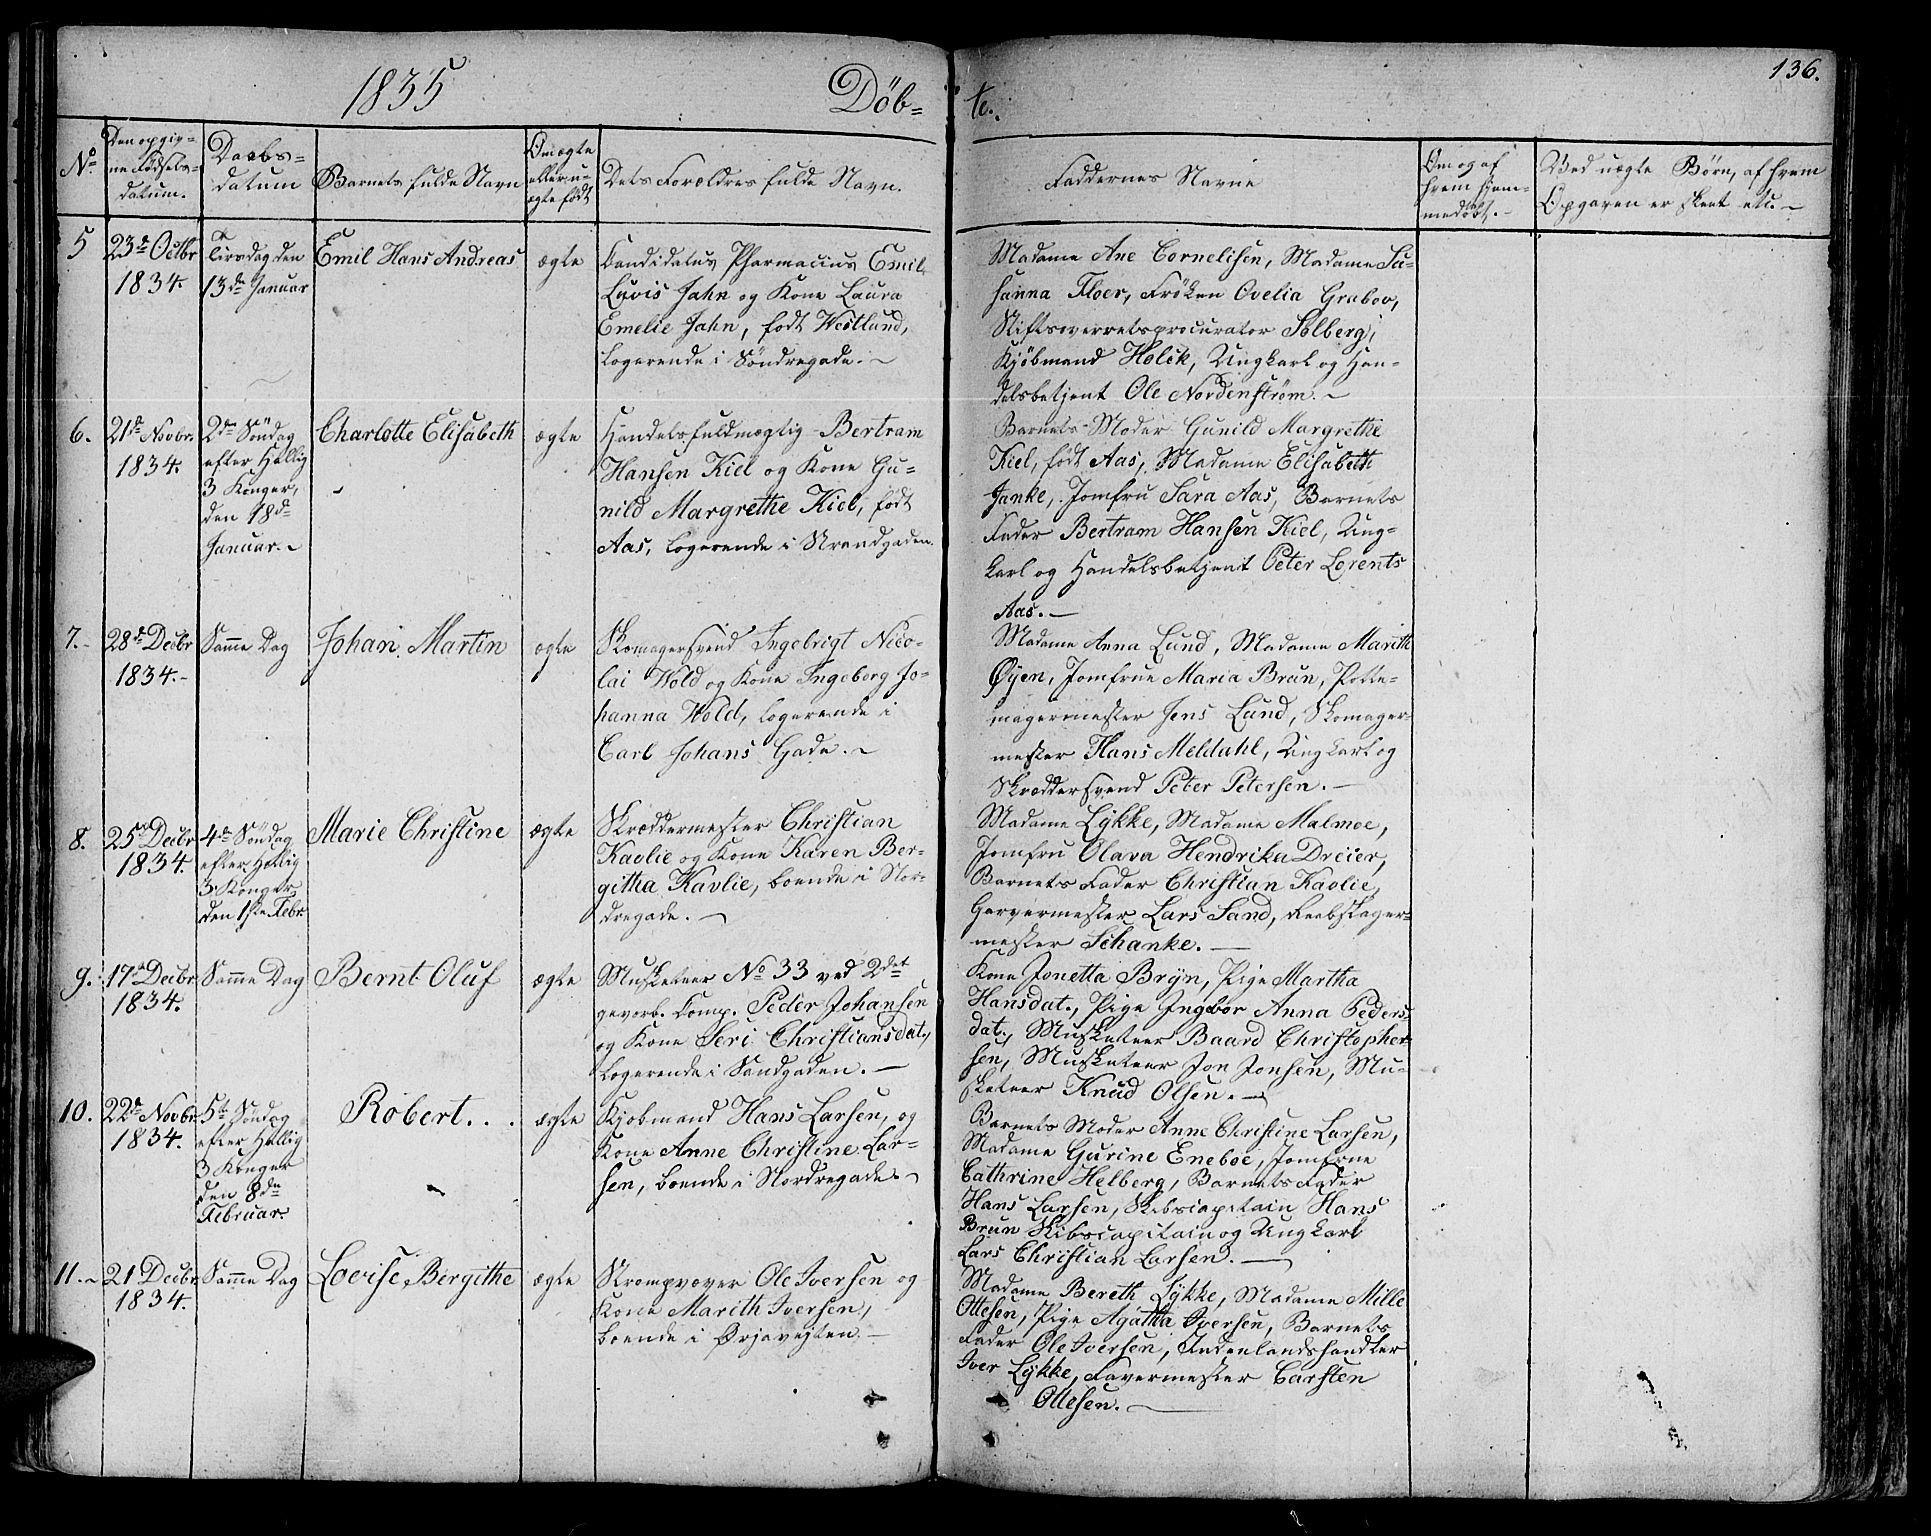 1835
Døb=
te.
136.
No
Den opgiv=
ne Fødsels=
datum.
Daabs=
datum
Barnets fulde Navn
Om ægte
eller u=
ægte født
Dets Forældres fulde Navn.
Faddernes Navne
Om og af
hvem hjem=
medøbt.
Ved uægte Børn, af hvem
Opgaven er skeet etc.
5
23de Octbr
1834.
Tirsdag den
13de Januar
Emil Hans Andreas
ægte
Candidatus Pharmacius Emil
Luvis Jahn og Kone Laura
Emelie Jahn, født Westlund,
logerende i Søndregade.
Madame Ane Cornelisen, Madame Su=
sanna Floer, Frøken Ovelia Grabov,
Stiftsoverretsprocurator Solberg,
Kjøbmand Holck, Ungkarl og Han=
delsbetjent Ole Nordenstrøm.
6.
21de Novbr.
1834.
2den Søndag
efter Hellig
3 Konger,
den 18de
Januar.
Charlotte Elisabeth
ægte
Handelsfuldmægtig Bertram
Hansen Kiel og Kone Gu=
nild Margrethe Kiel, født
Aas, logerende i Strandgaden.
Barnets Moder Gunild Margrethe
Kiel, født Aas, Madame Elisabeth
Janke, Jomfru Sara Aas, Barnets
Fader Bertram Hansen Kiel, Ung=
karl og Handelsbetjent Peter Lorents
Aas.
7.
28de Decbr
1834.
Samme Dag
Johan Martin
ægte
Skomagersvend Ingebrigt Nico=
lai Wold og Kone Ingeborg Jo=
hanna Wold, logerende i
Carl Johans Gade.
Madame Anna Lund, Madame Marith
Øyen, Jomfrue Maria Brun, Potte=
magermester Jens Lund, Skomager=
mester Hans Meldahl, Ungkarl og
Skræddersvend Peter Petersen.
8.
25de Decbr
1834.
4de Søndag
efter Hellig
3 Konger,
den 1ste Febr.
Marie Christine
ægte
Skræddermester Christian
Kavlie og Kone Karen Ber=
githa Kavlie, boende i Nor=
dregade.
Madame Lykke, Madame Malmoe,
Jomfru Olava Hendrika Dreier,
Barnets Fader Christian Kavlie,
Garvermester Lars Sand, Reebslager=
mester Schanke.
9.
17de Decbr
1834.
Samme Dag
Bernt Oluf
ægte
Musketeer No 33 ved 2det
gevorb. Comp. Peder Johansen
og Kone Seri Christiansdat.,
logerende i Sandgaden.
Kone Jonetta Bryn, Pige Martha
Hansdat., Pige Ingbor Anna Peders=
dat., Musketeer Baard Christopher=
sen, Musketeer Jon Jonsen, Mu=
sketeer Knud Olsen.
10.
22de Novbr
1834.
5te Søndag
efter Hellig
3 Konger
den 8de
Februar.
Robert.
ægte
Kjøbmand Hans Larsen, og
Kone Anne Christine Lar=
sen, boende i Nordregade.
Barnets Moder Anne Christine Larsen,
Madame Gurine Eneboe, Jomfrue
Cathrine Helberg, Barnets Fader
Hans Larsen, Skibscapitain Hans
Brun Skibscapitain og Ungkarl
Lars Christian Larsen.
11.
21 Decbr
1834.
Samme Dag
Lovise Bergithe
ægte
Strømpvæver Ole Iversen og
Kone Marith Iversen,
boende i Ørjaveiten.
Madame Bereth Lykke, Madame Mille
Ottesen, Pige Agatha Iversen, Barnets
Fader Ole Iversen, Indenlandshandler
Iver Lykke, Farvermester Carsten
Ottesen.